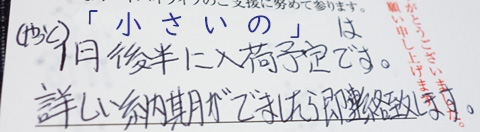 ライフのご支援に努めて参ります。
(やっと)「小さいの」は
後半に入荷予定です。
詳しい納期がでましたら即連絡致します。
がとうございます
願い申し上げます。